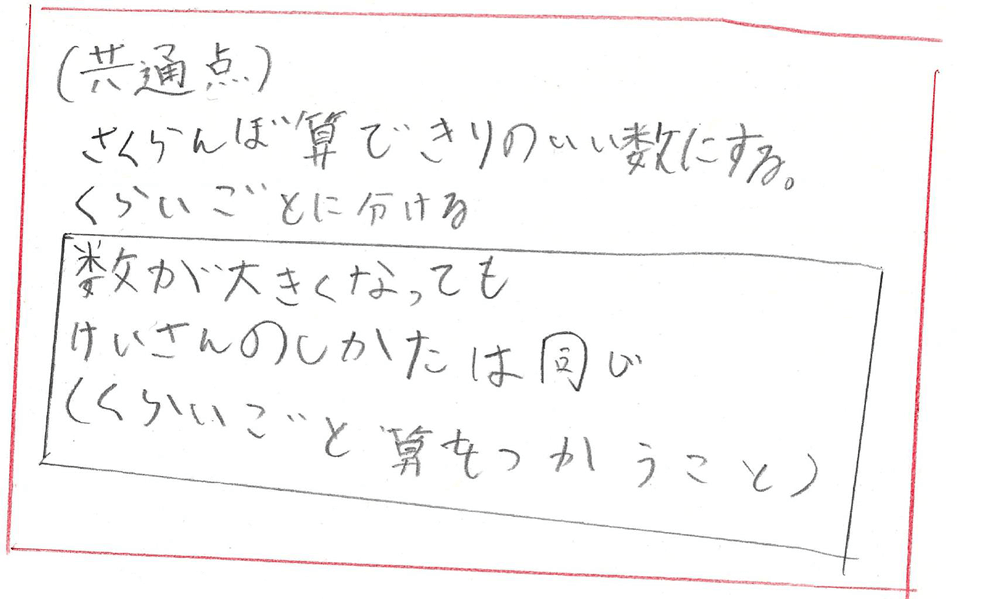 (共通点)
さくらんぼ算できりのいい数にする。
くらいごとに分ける
数が大きくなっても
けいさんのしかたは同じ
(くらいごと算をつかうこと)